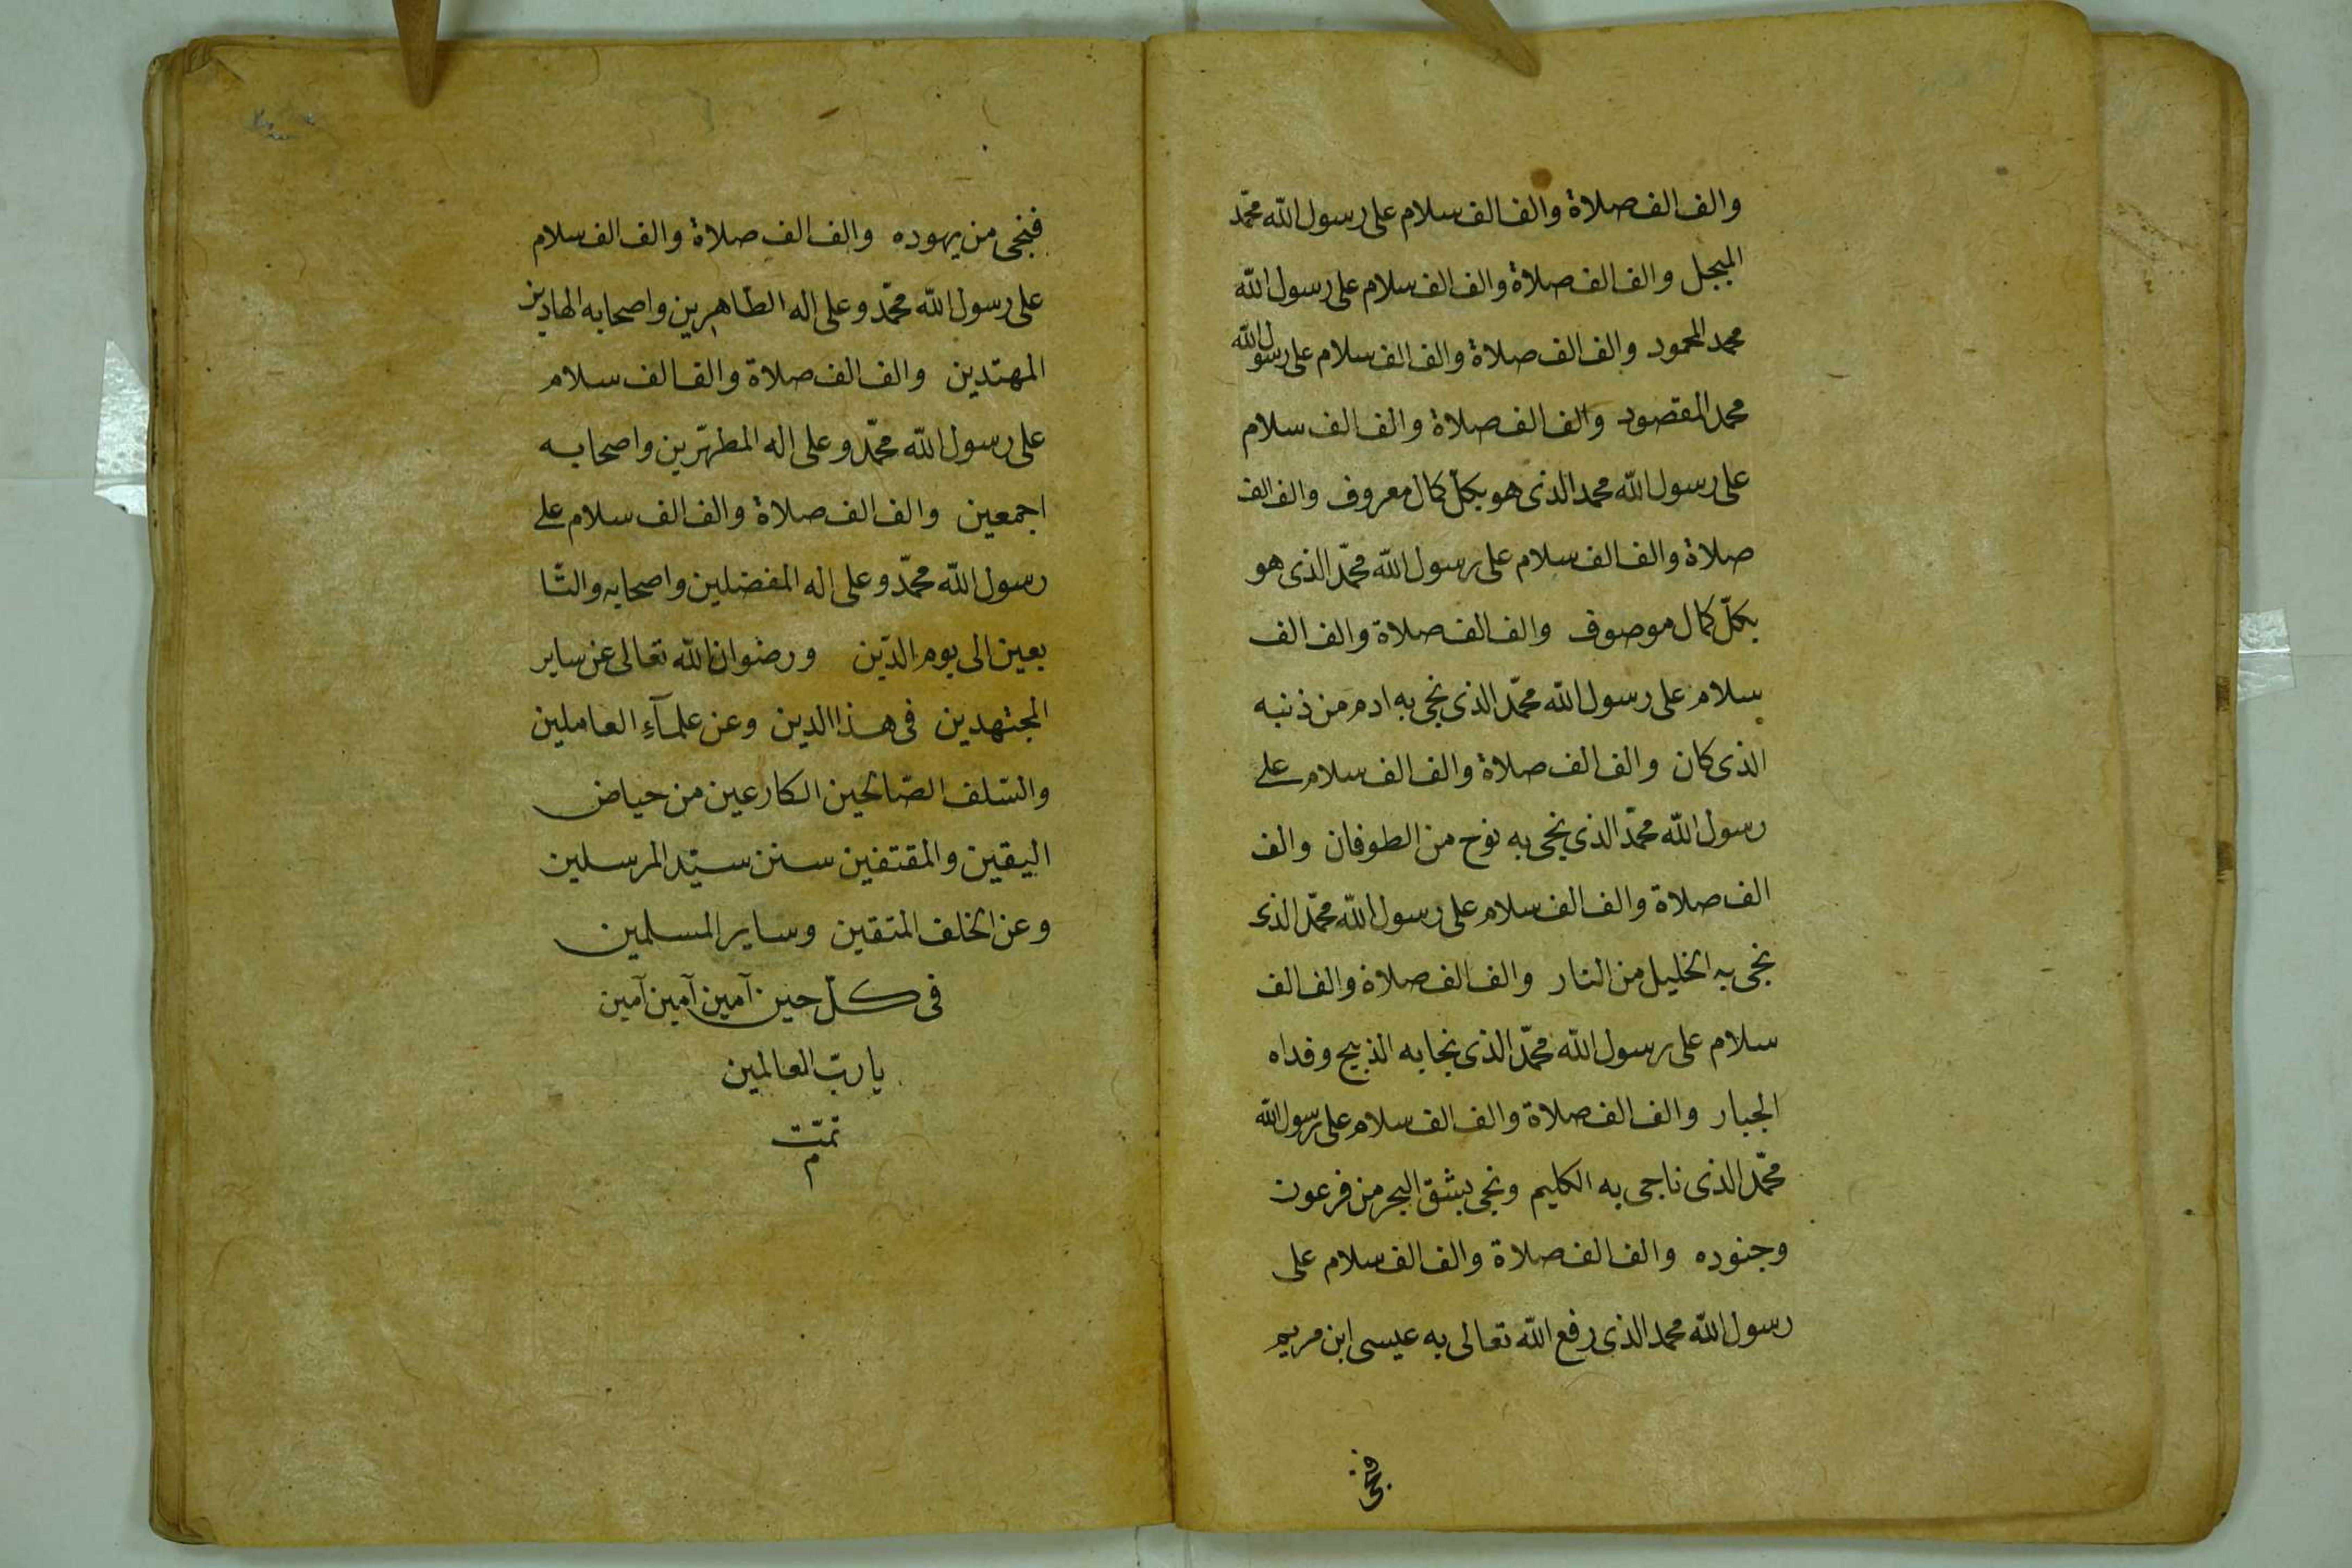 والف الف صلاة والف الف سلام على رسول الله محمّد
المبجل والف الف صلاة والف الف سلام على رسول الله
محمد المحمود والف الف صلاة والف الف سلام على رسول الله
محمد المقصود والف الف صلاة والف الف سلام
على رسول الله محمد الذى هو بكلّ كمال معروف والف الف
صلاة والف الف سلام على رسول الله محمّد الذى هو
بكلّ كمال موصوف والف الف صلاة والف الف
سلام على رسول الله محمّد الذى نجى به ادم من ذنبه
الذى كان والف الف صلاة والف الف سلام على
رسول الله محمّد الذى نجى به نوح من الطوفان والف
الف صلاة والف الف سلام على رسول الله محمّد الذى
نجى به الخليل من النار والف الف صلاة والف الف
سلام على رسول الله محمّد الذى نجا به الذبيح وفداه
الجبار والف الف صلاة والف الف سلام على رسول الله
محمّد الذى ناجى به الكليم ونجى بشق البحر من فرعون
وجنوده والف الف صلاة والف الف سلام على
رسول الله محمد الذى رفع الله تعالى به عيسى ابن مريم
فنجى
فنجى من يهوده والف الف صلاة والف الف سلام
على رسول الله محمّد وعلى اله الطّاهرين واصحابه الهادين
المهتدين والف الف صلاة والف الف سلام
على رسول الله محمّد وعلى اله المطهّرين واصحابه
اجمعين والف الف صلاة والف الف سلام على
رسول الله محمّد وعلى اله المفضلين واصحابه والتّا
بعين الى يوم الدّين ورضوان الله تعالى عن ساير
المجتهدين فى هذا الدين وعن علمآء العاملين
والسّلف الصّالحين الكارعين من حياض
اليقين والمقتفين سنن سيّد المرسلين
وعن الخلف المتقين وساير المسلمين
فى كلّ حين آمين آمين آمين
يا ربّ العالمين
تمّت
م